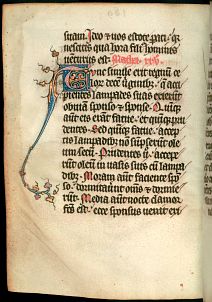 suram. Ideo ⁊ uos estote parati. q̄
nescitis qua hora filius hominis
uenturus est. Mathei. xxv.
Tunc simile erit regnum ce
lor̄ decē uginib;. que acci
pientes lampades suas exierūt
obuiā sponso ⁊ sponse. Quinq;
aūt ex eis erāt fatue. et quinq; pru
dentes. Sed quinq; fatue. accep
tis lampadib; nō sūpserūt ole
um secū. Prudentes ū accepe
rūt oleū in uasis suis cū lampa
dib;. Moram aūt faciente spō
so. dormitauerūt om̄s ⁊ dormie
rūt. Media autē nocte clamor
factus est. ecce sponsus uenit exi